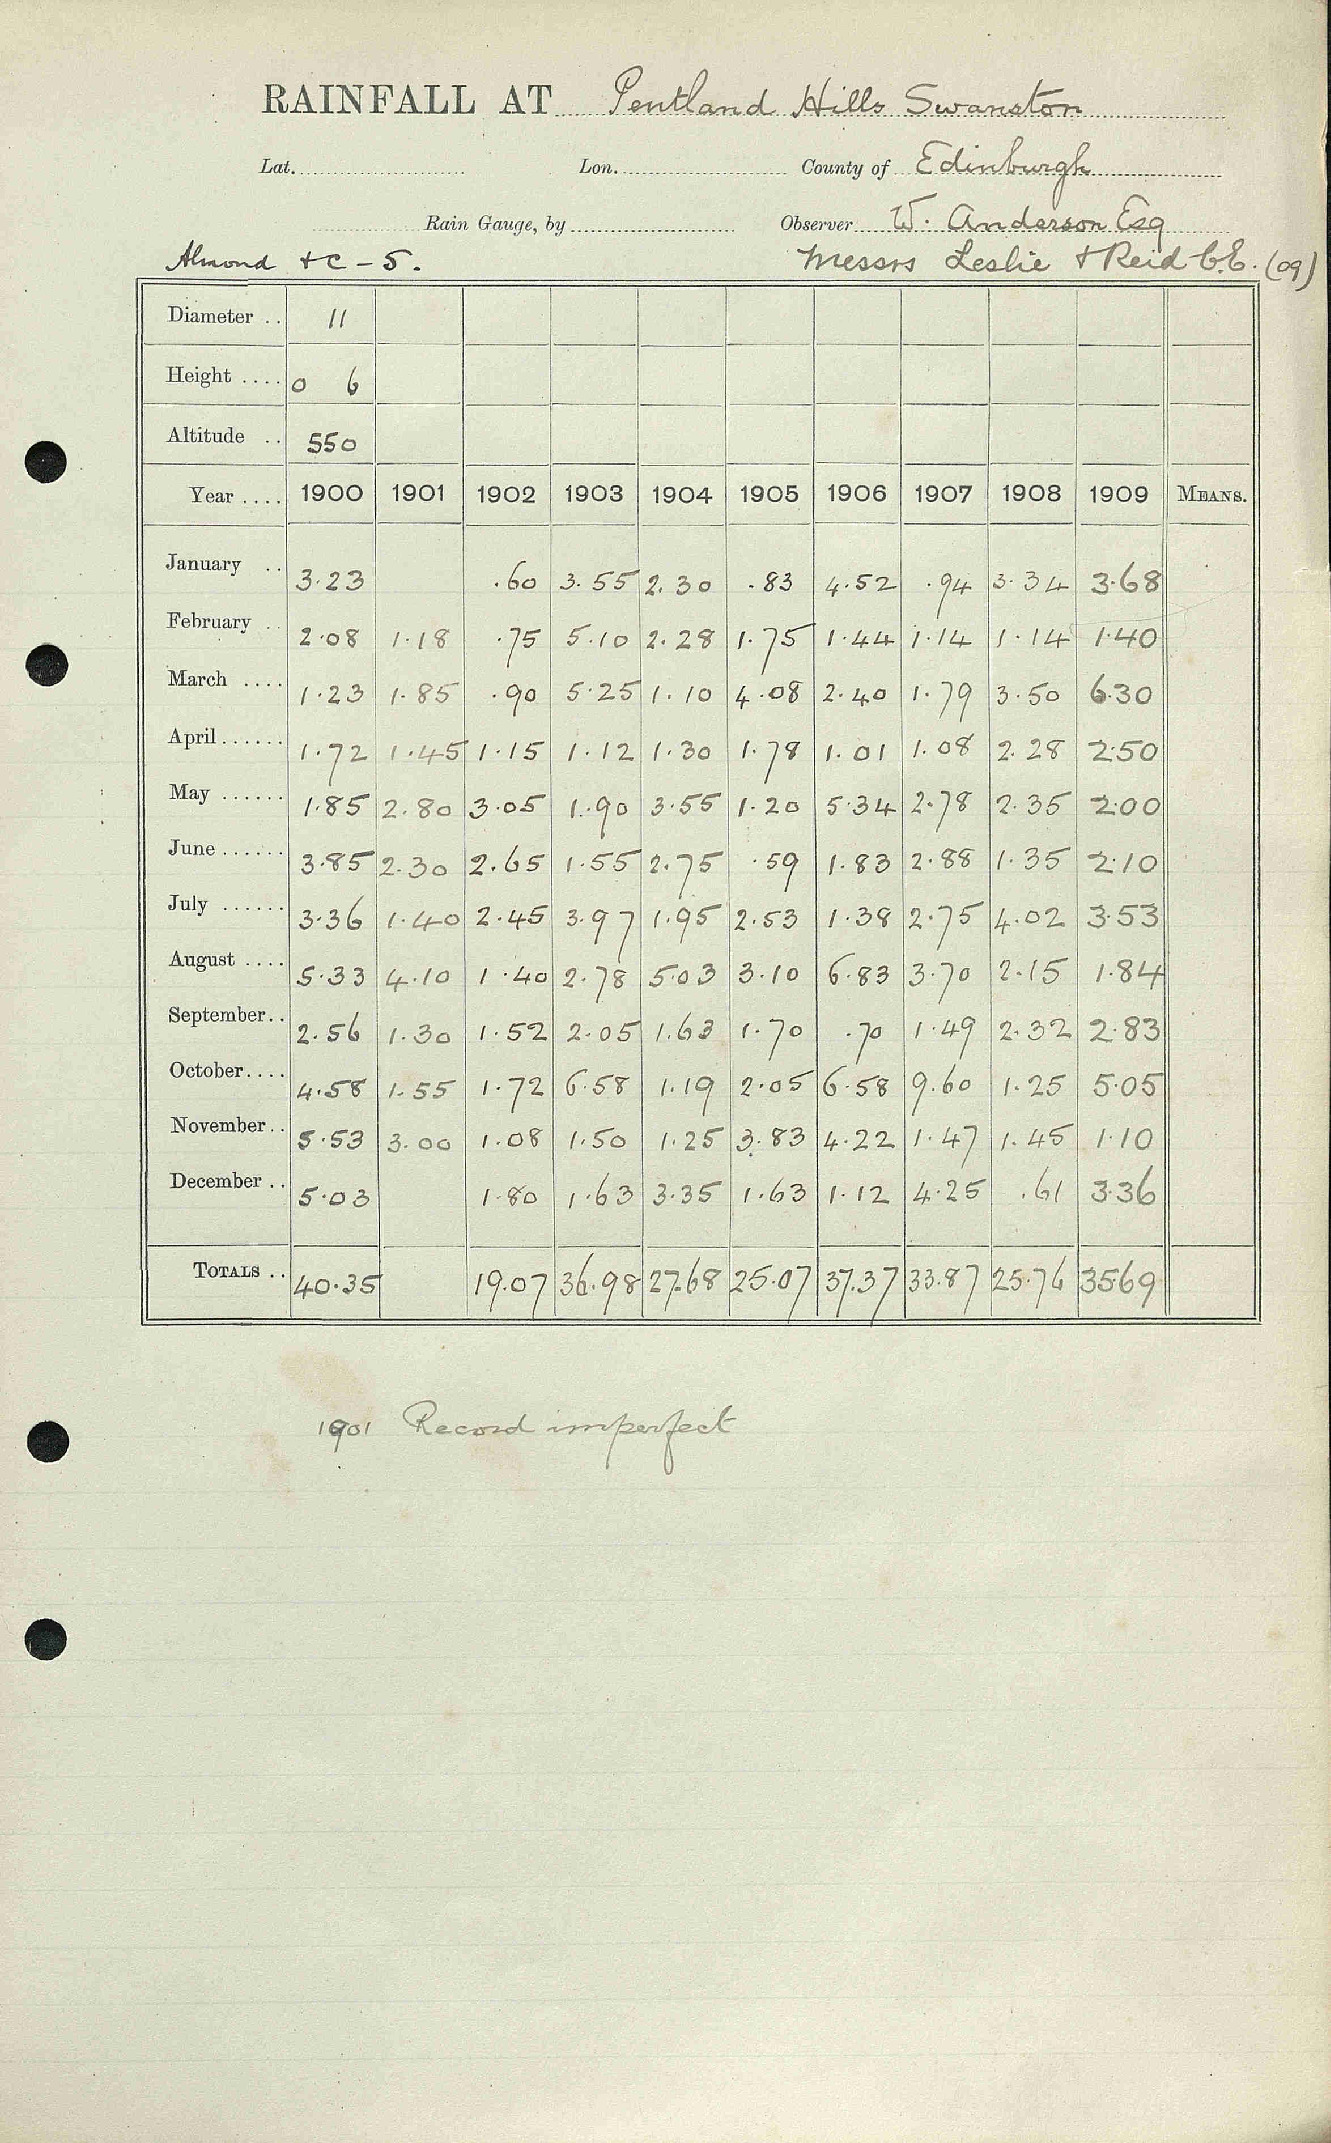 RAINFALL AT Pentland Hills Swanston
Lat. Lon. County of Edinburgh
Rain Gauge, by Observer W. Anderson Esq
Almond &c - S. Messrs Leslie & Reid C.E. (09)
Diameter .. 11
Height .... 0 6
Altitude .. 550
Year .... 1900 1901 1902 1903 1904 1905 1906 1907 1908 1909 MEANS.
January .. 3.23 .60 3.55 2.30 .83 4.52 .94 3.34 3.68
February .. 2.08 1.18 .75 5.10 2.28 1.75 1.44 1.14 1.14 1.40
March .... 1.23 1.85 .90 5.25 1.10 4.08 2.40 1.79 3.50 6.30
April ...... 1.72 1.45 1.15 1.12 1.30 1.78 1.01 1.08 2.28 2.50
May ...... 1.85 2.80 3.05 1.90 3.55 1.20 5.34 2.78 2.35 2.00
June ...... 3.85 2.30 2.65 1.55 2.75 .59 1.83 2.88 1.35 2.10
July ...... 3.36 1.40 2.45 3.97 1.95 2.53 1.38 2.75 4.02 3.53
August .... 5.33 4.10 1.40 2.78 5.03 3.10 6.83 3.70 2.15 1.84
September.. 2.56 1.30 1.52 2.05 1.63 1.70 .70 1.49 2.32 2.83
October.... 4.58 1.55 1.72 6.58 1.19 2.05 6.58 9.60 1.25 5.05
November.. 5.53 3.00 1.08 1.50 1.25 3.83 4.22 1.47 1.45 1.10
December .. 5.03 1.80 1.63 3.35 1.63 1.12 4.25 .61 3.36
TOTALS .. 40.35 19.07 36.98 27.68 25.07 37.37 33.87 25.76 35.69
1901 Record imperfect